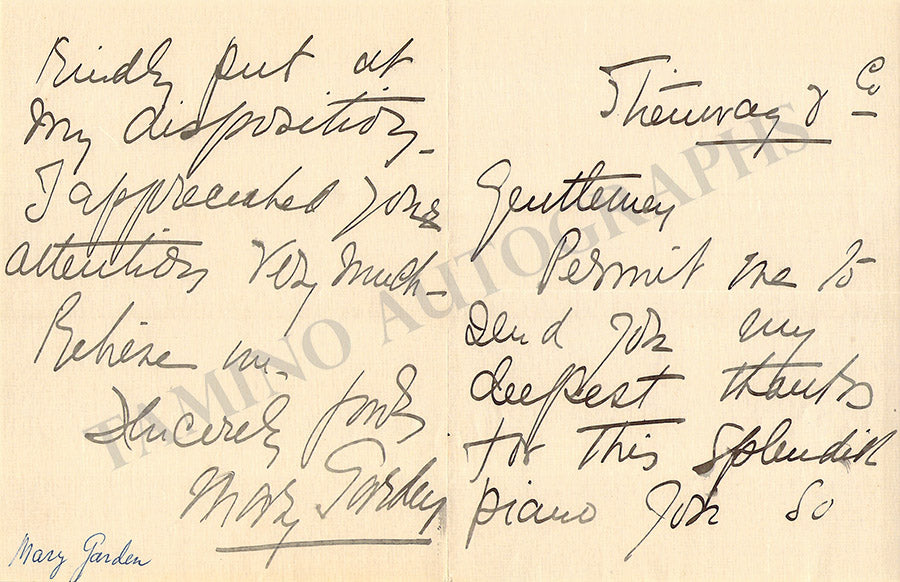 Steinway & Co
Gentlemen
Permit me to
send you my
deepest thanks
for this splendid
piano you so
kindly put at
my disposition_
I appreciated your
attention very much_
Believe me.
Sincerely yours
Mary Garden
Mary Garden
TAMINO AUTOGRAPHS